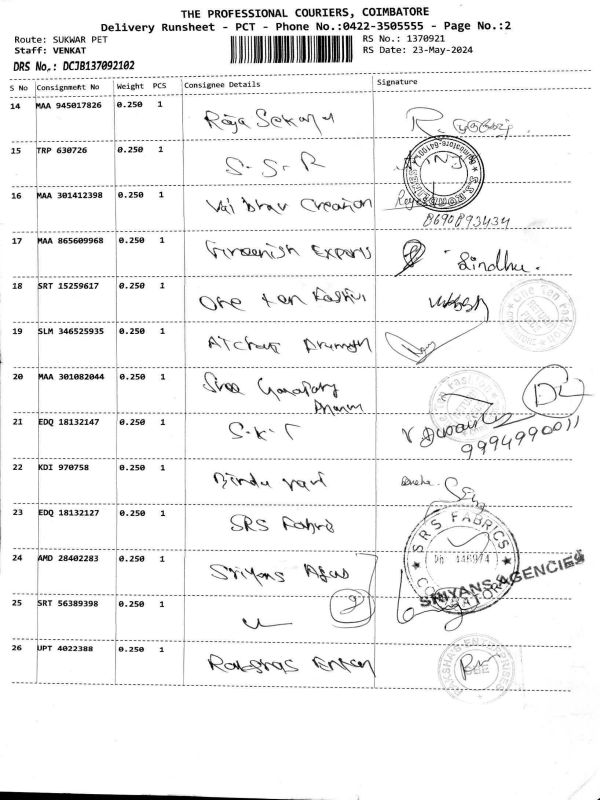 THE PROFESSIONAL COURIERS, COIMBATORE
Delivery Runsheet - PCT - Phone No.:0422-3505555 - Page No.:2
Route: SUKWAR PET
RS No.: 1370921
Staff: VENKAT
RS Date: 23-May-2024
DRS No,: DCJB137092102
S No Consignment No Weight PCS Consignee Details Signature
14 MAA 945017826 0.250 1 Raja Sekar R.
15 TRP 630726 0.250 1 S-S-R
16 MAA 301412398 0.250 1 Vai bhav Creation
8690893434
17 MAA 865609968 0.250 1 Greenish Exports Sindhu.
18 SRT 15259617 0.250 1 One ten Fashion
19 SLM 346525935 0.250 1
20 MAA 301082044 0.250 1 Sree Ganapathy
21 EDQ 18132147 0.250 1 S-K-T
9994990011
22 KDI 970758 0.250 1 Bindu
23 EDQ 18132127 0.250 1 SRS Fabrics
SRS FABRICS
24 AMD 28402283 0.250 1 Sriyans Agas
SRIYANS AGENCIES
25 SRT 56389398 0.250 1 u
26 UPT 4022388 0.250 1 Rakshas